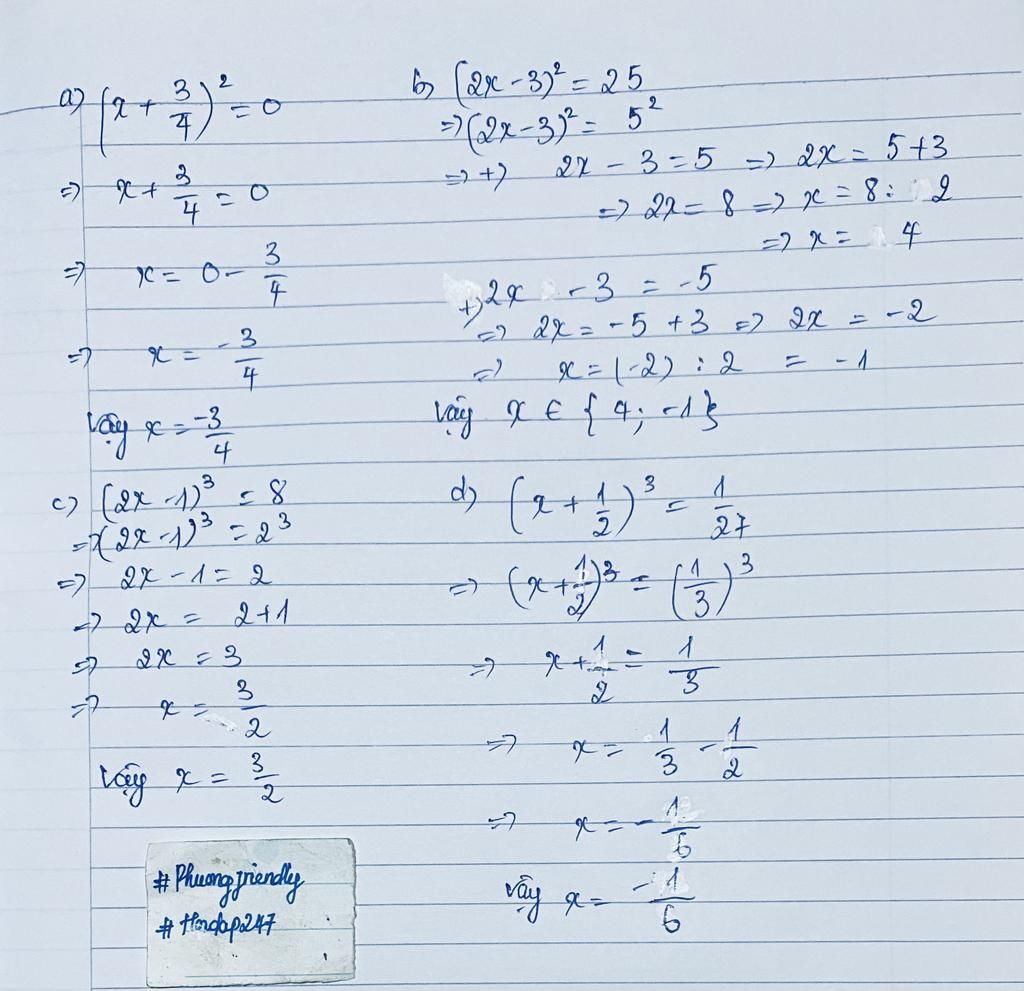 a) (x + 3/4)² = 0
=> x + 3/4 = 0
=> x = 0 - 3/4
=> x = -3/4
Vậy x = -3/4
b) (2x - 3)² = 25
=> (2x - 3)² = 5²
=> +) 2x - 3 = 5 => 2x = 5 + 3
=> 2x = 8 => x = 8 : 2
=> x = 4
+) 2x - 3 = -5
=> 2x = -5 + 3 => 2x = -2
=> x = (-2) : 2 = -1
Vậy x ∈ { 4; -1 }
c) (2x - 1)³ = 8
=> (2x - 1)³ = 2³
=> 2x - 1 = 2
=> 2x = 2 + 1
=> 2x = 3
=> x = 3/2
Vậy x = 3/2
d) (x + 1/2)³ = 1/27
=> (x + 1/2)³ = (1/3)³
=> x + 1/2 = 1/3
=> x = 1/3 - 1/2
=> x = -1/6
Vậy x = -1/6
# Phuongfriendly
# Hoidap247